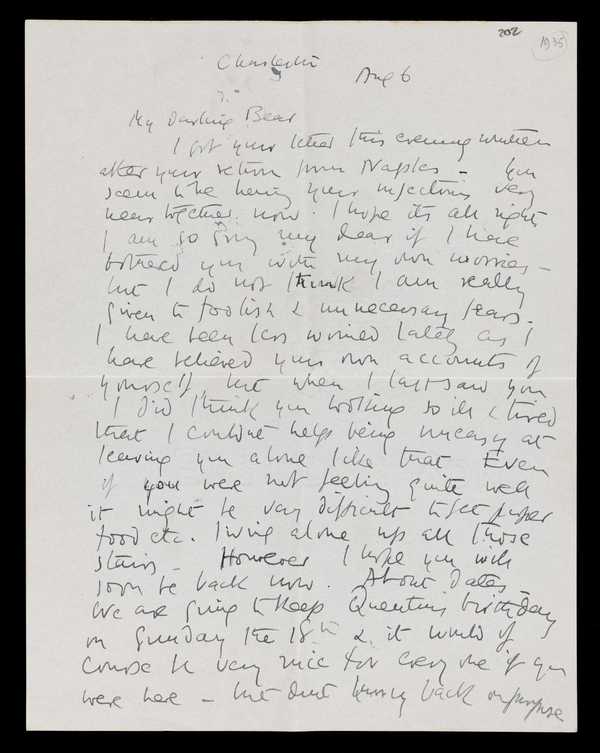 202
1935
Charleston
Aug 6
My Darling Bear
I got your letter this evening written
after your return from Naples - You
seem to be having your injections very
near together now. I hope its all right
I am so sorry my dear if I have
bothered you with my own worries -
but I do not think I am really
given to foolish & unnecessary fears.
I have been less worried lately as I
have believed your own accounts of
yourself but when I last saw you
I did think you looking so ill & tired
that I couldnt help being uneasy at
leaving you alone like that Even
if you were not feeling quite well
it might be very difficult to get proper
food etc. living alone up all those
stairs - However I hope you will
soon be back now. About dates
We are going to keep Quentins birthday
on Sunday the 18th & it would of
course be very nice for every one if you
were here - but dont hurry back on purpose